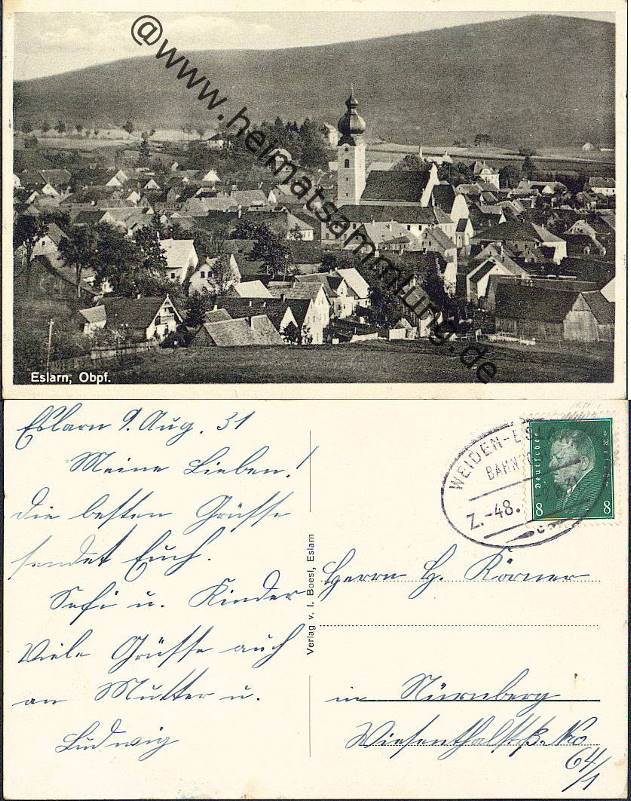 @www.heimatsammlung.de
Eslarn, Obpf.
Eslarn 9. Aug. 31
Meine Lieben!
Die besten Grüsse
sendet Euch.
Sefi u. Kinder
Viele Grüsse auch
an Mutter u.
Ludwig
Verlag v. I. Boesl, Eslarn
WEIDEN-ES
BAHNPO
Z.-48.
Deutsches Reich
8 8
Herrn H. Körner
in Nürnberg
Wiesenthalstr. No
64/1